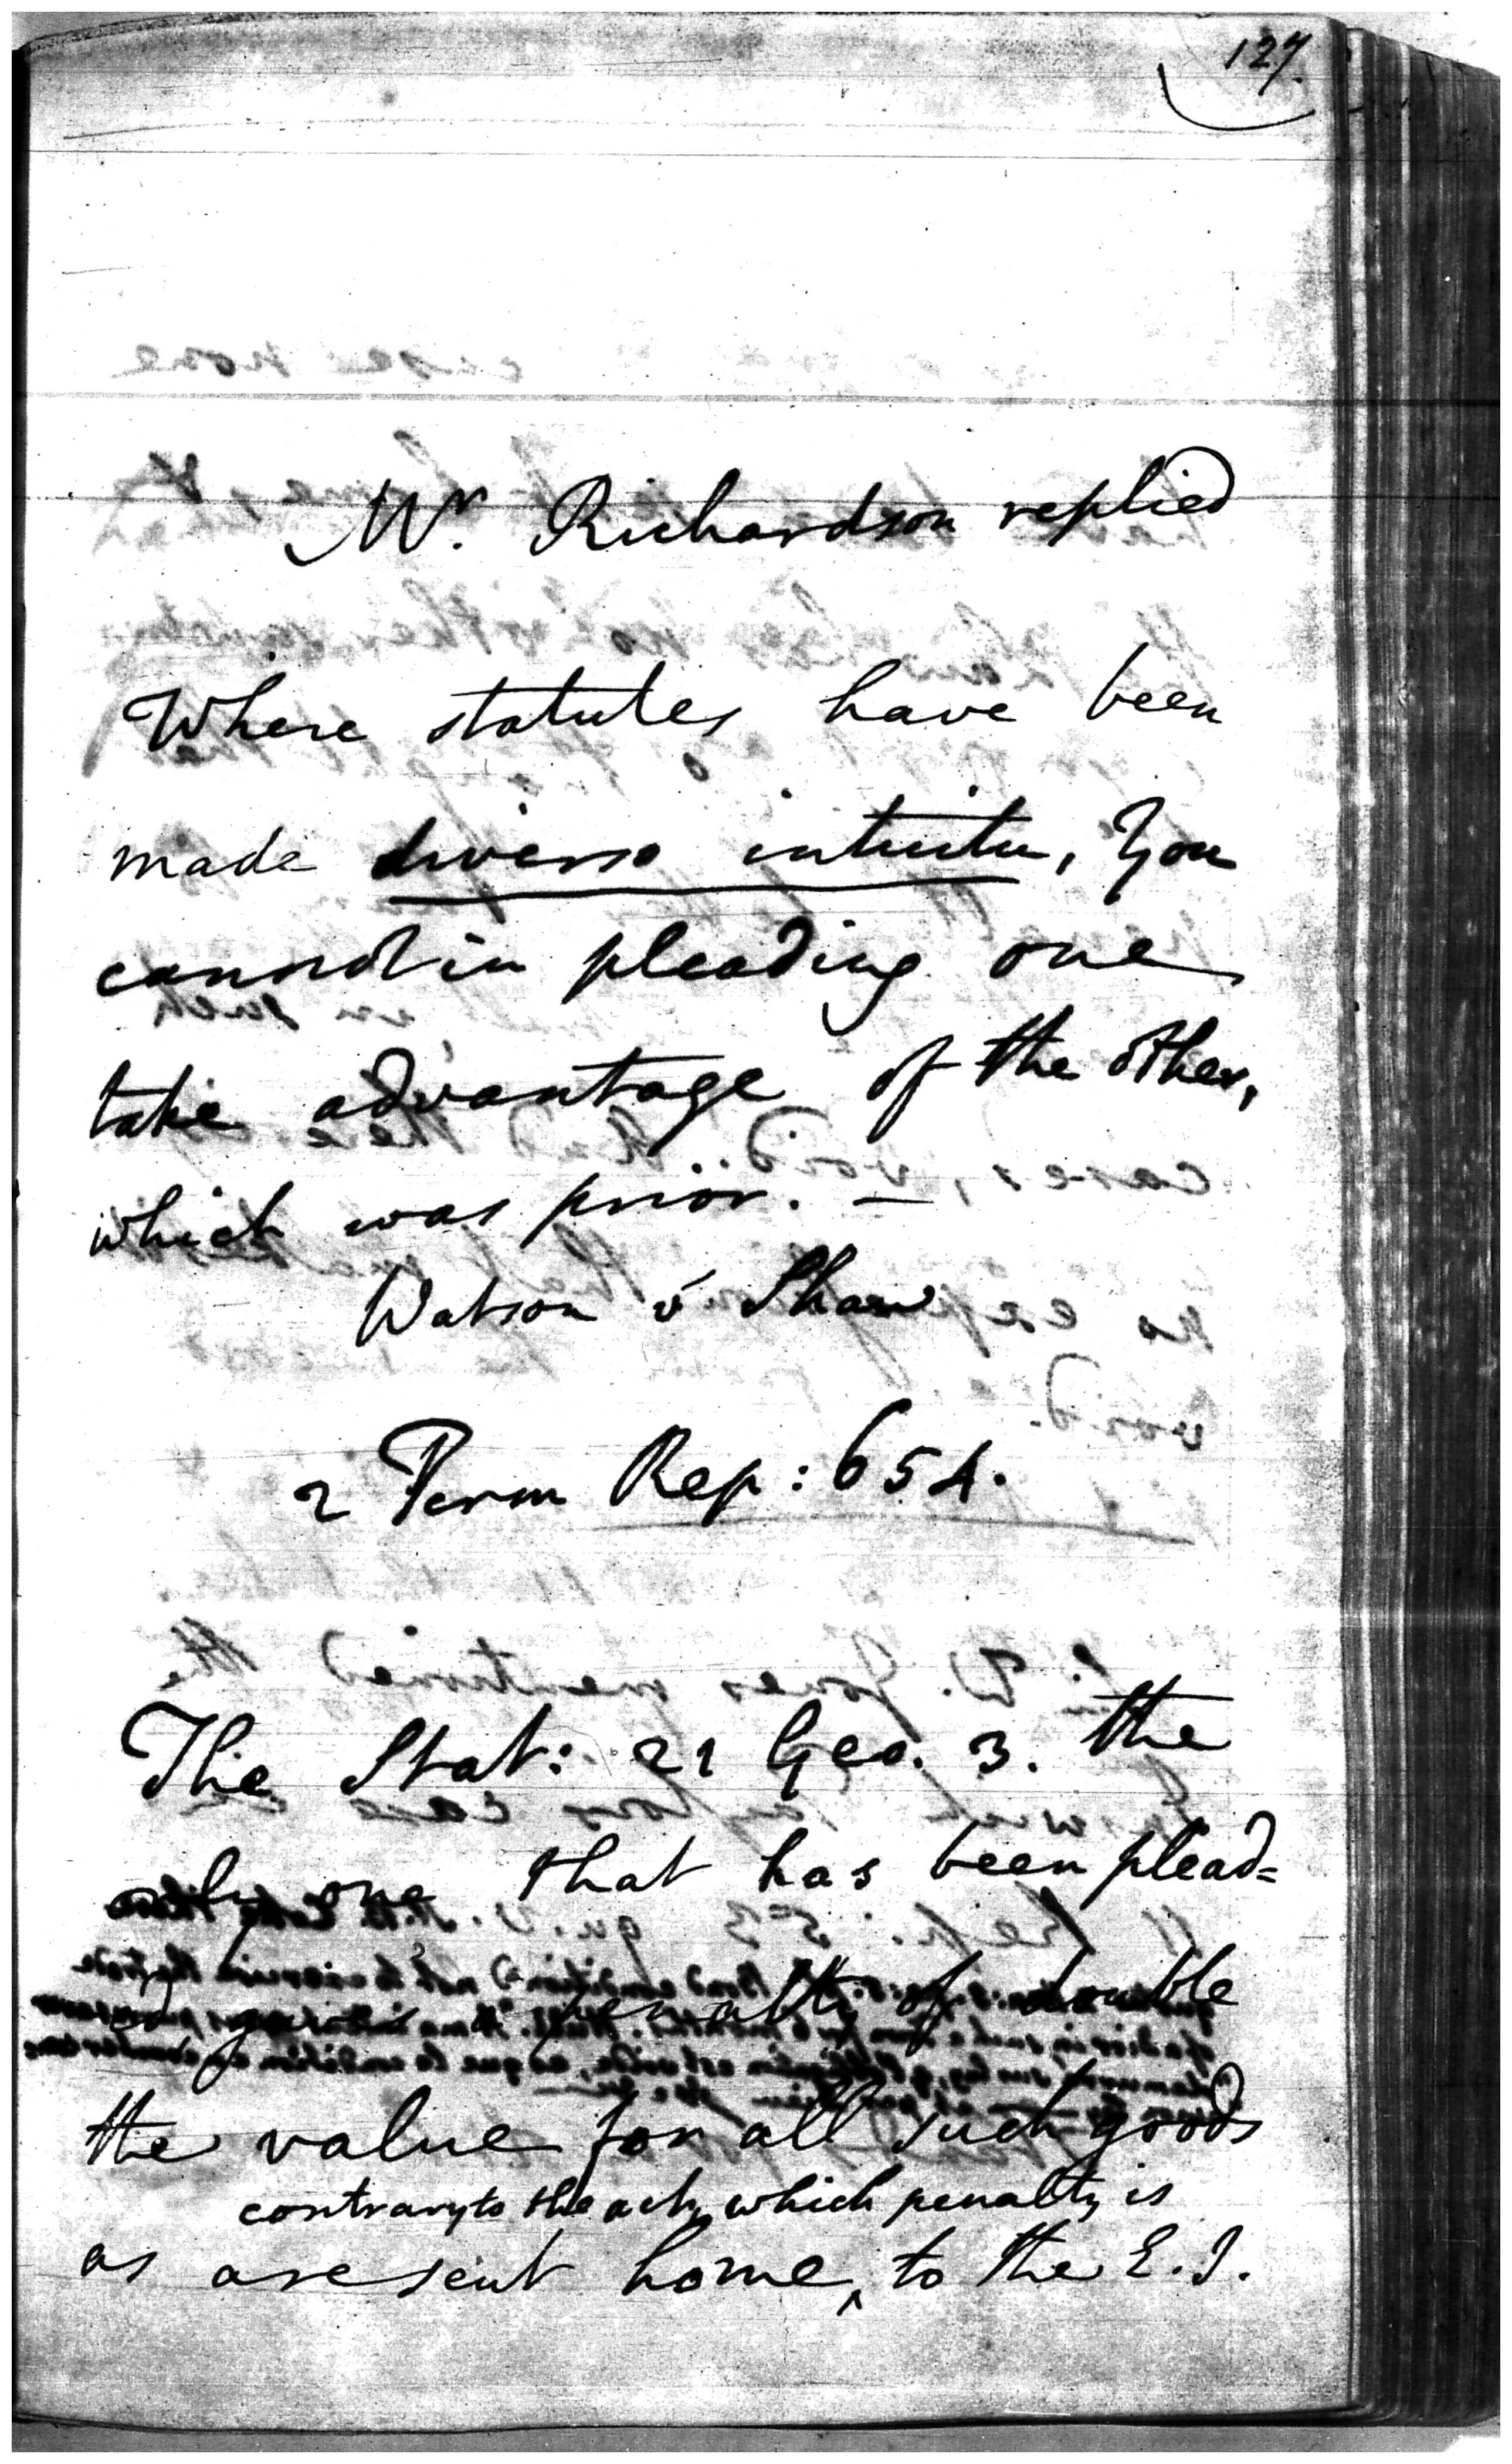 127.
Mr. Richardson replied
Where statutes have been
made diverso intuitu, You
cannot in pleading one
take advantage of the other,
which was prior. —
Watson v. Shaw
2 Term Rep: 654.
The Stat: 21 Geo. 3. the
only one that has been plead=
ed gives a penalty of double
the value for all such goods
contrary to the act, which penalty is
as are sent home, ‸ to the E. I.